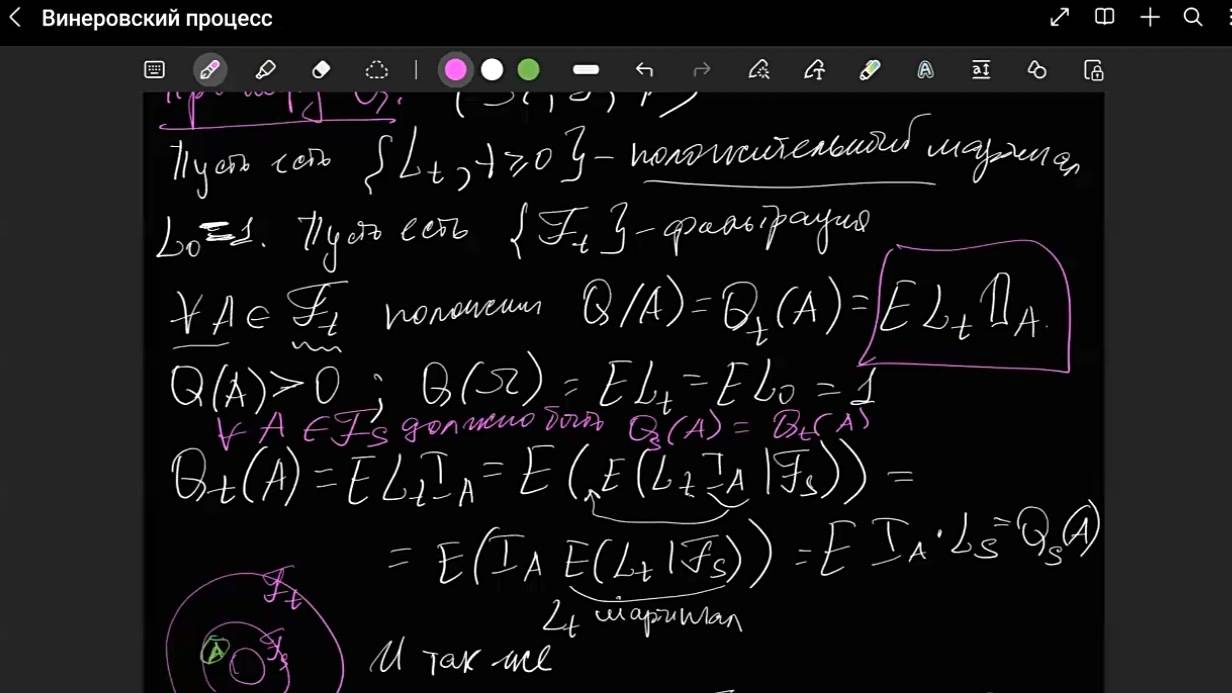 Винеровский процесс
Пусть есть {L_t, t ≥ 0} – положительный мартингал
L_0 = 1. Пусть есть {F_t} – фильтрация
∀ A ∈ F_t положим Q(A) = Q_t(A) = E L_t 𝟙_A.
Q(A) > 0 ; Q(Ω) = E L_t = E L_0 = 1
∀ A ∈ F_s должно быть Q_s(A) = Q_t(A)
Q_t(A) = E L_t I_A = E(E(L_t I_A | F_s)) =
= E(I_A E(L_t | F_s)) = E I_A · L_s = Q_s(A)
L_t мартингал
F_t
A F_s
И так же